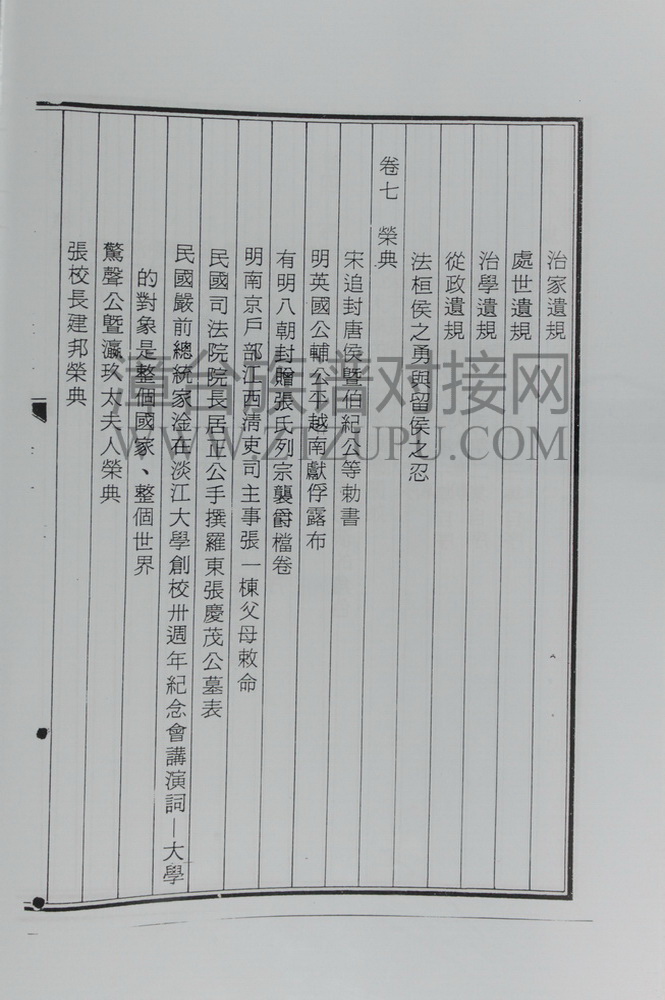 治家遺規
處世遺規
治學遺規
從政遺規
法桓侯之勇與留侯之忍
卷七 榮典
宋追封唐侯暨伯紀公等勅書
明英國公輔公平越南獻俘露布
有明八朝封贈張氏列宗襲爵檔卷
明南京戶部江西淸吏司主事張一棟父母敕命
民國司法院院長居正公手撰羅東張慶茂公墓表
民國嚴前總統家淦在淡江大學創校卅週年紀念會講演詞—大學
的對象是整個國家、整個世界
驚聲公暨瀛玖太夫人榮典
張校長建邦榮典
漳台族谱对接网
WWW.ZTZUPU.COM